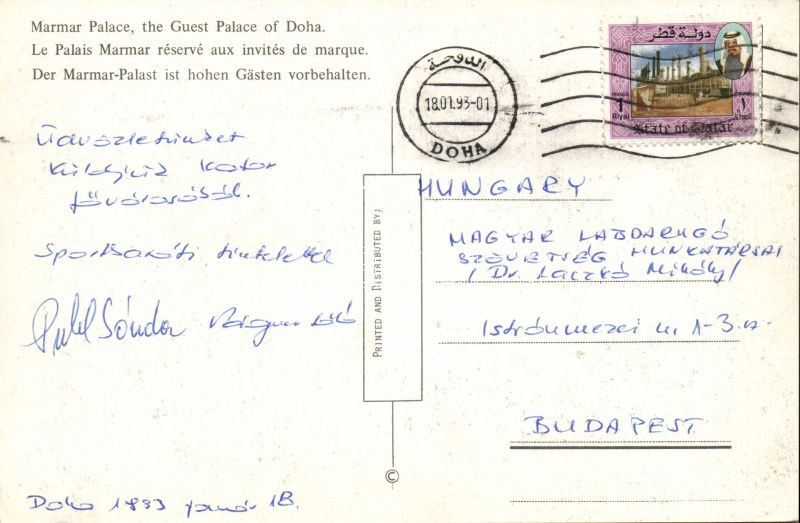 Marmar Palace, the Guest Palace of Doha.
Le Palais Marmar réservé aux invités de marque.
Der Marmar-Palast ist hohen Gästen vorbehalten.
الدوحة
18.01.93-01
DOHA
دولة قطر
1
Riyal
١
State of Qatar
Üdvözletünket
küldjük Katar
fővárosából.
Sportbaráti tisztelettel
Puhl Sándor Vágner László
Doha 1993 január 18.
PRINTED AND DISTRIBUTED BY:
©
HUNGARY
MAGYAR LABDARUGÓ
SZÖVETSÉG MUNKATÁRSAI
/ Dr. Laczkó Mihály /
Istvánmezei u 1-3.
BUDAPEST